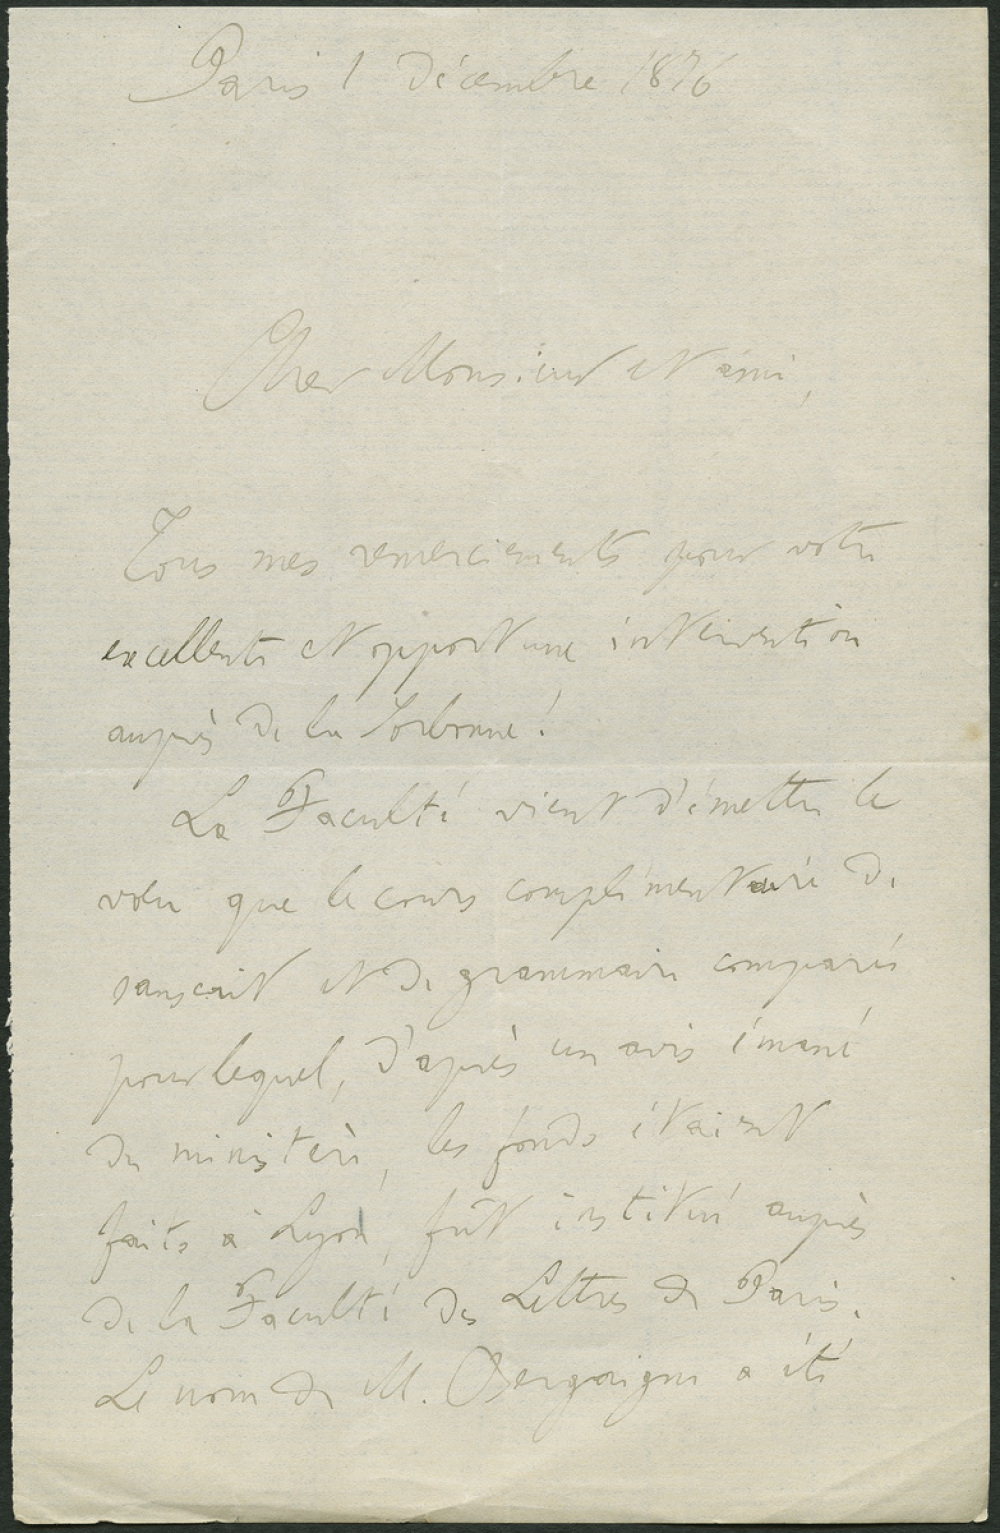 Paris 1 Décembre 1876
Cher Monsieur et ami,
Tous mes remerciements pour votre
excellente et opportune intervention
auprès de la Sorbonne!
La Faculté vient d'émettre le
vœu que le cours complémentaire de
sanscrit et de grammaire comparée
pour lequel, d'après un avis émané
du ministère, les fonds étaient
faits à Lyon, fût institué auprès
de la Faculté des Lettres de Paris.
Le nom de M. Bergaigne a été